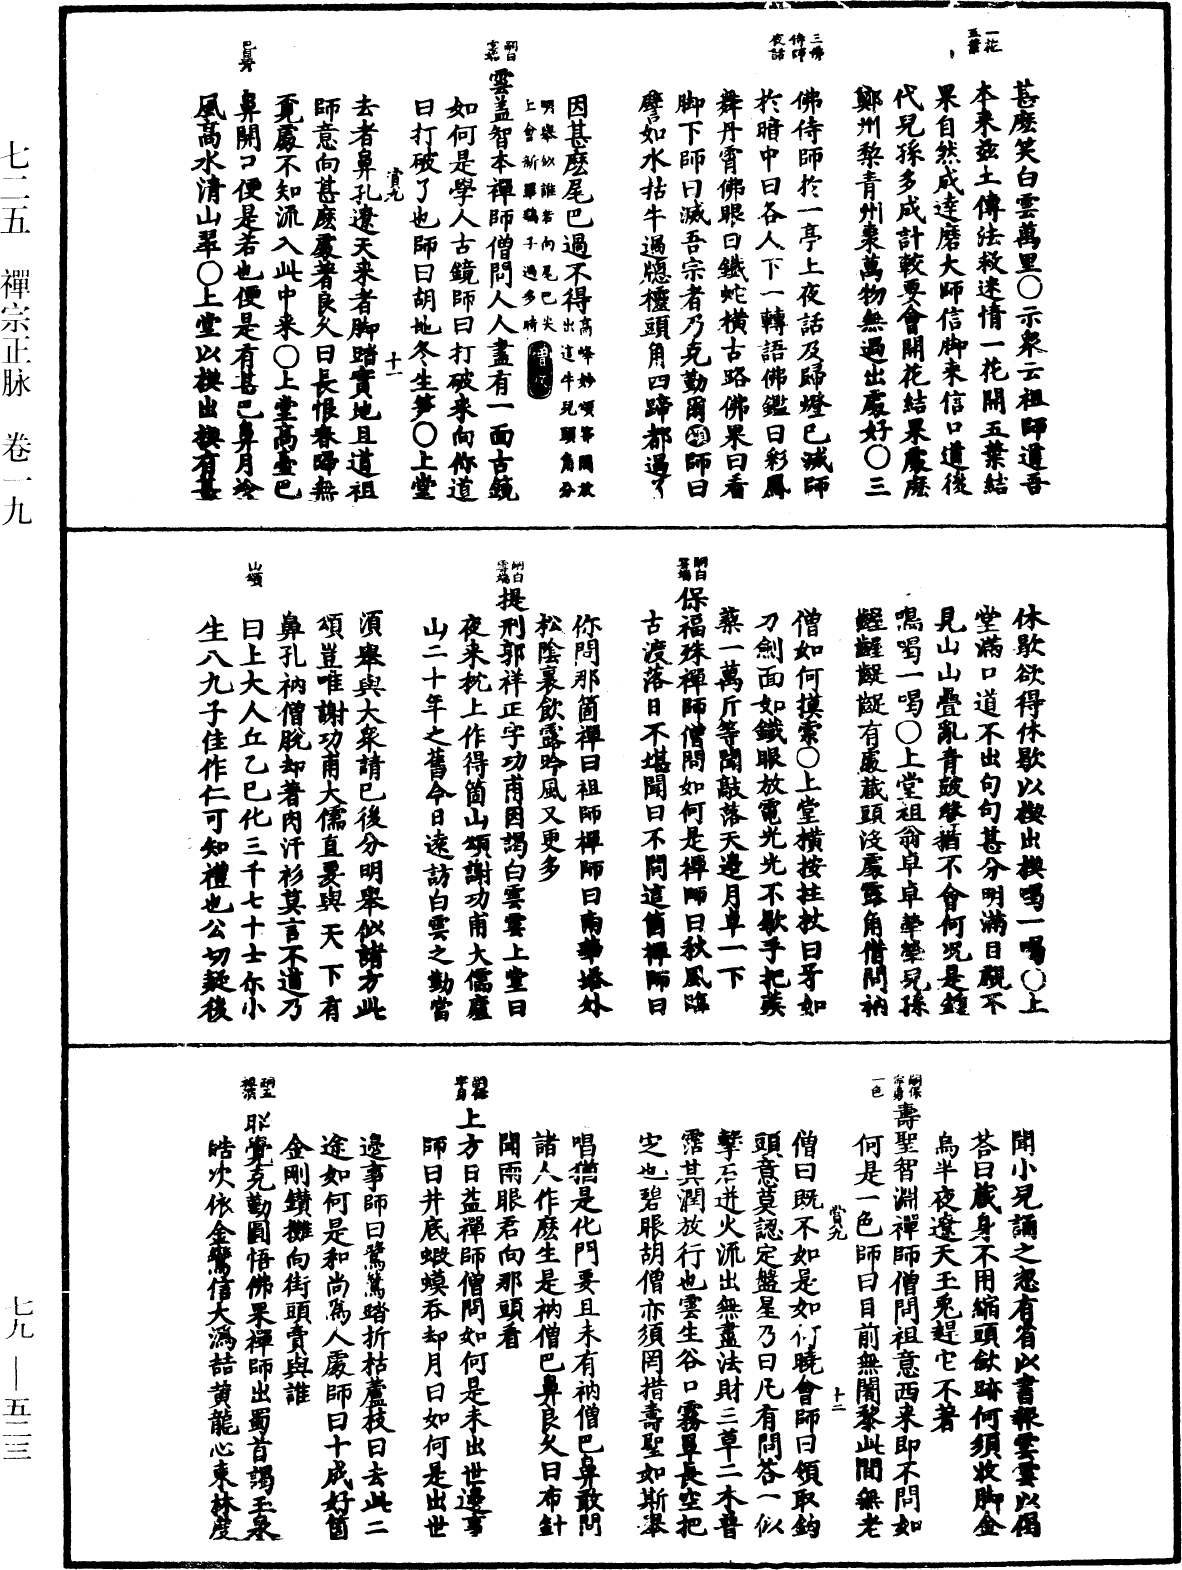 七二五　禪宗正脉　卷一九
七九—五二三
一花五葉
甚麽笑白雲萬里〇示衆云祖師道吾
本來茲土傳法救迷情一花開五葉結
果自然成達磨大師信脚來信口道後
代兒孫多成計較要會開花結果處麽
鄭州黎青州棗萬物無過出處好〇三
三佛侍師夜話
佛侍師於一亭上夜話及歸燈已滅師
於暗中曰各人下一轉語佛鑑曰彩鳳
舞丹霄佛眼曰鐵蛇橫古路佛果曰看
脚下師曰滅吾宗者乃克勤爾頌師曰
譬如水牯牛過窻櫺頭角四蹄都過了
因甚麽尾巴過不得高峰妙頌等閑放出這牛兒頭角分
明擧似誰若向尾巴尖上會新羅鷂子過多時
嗣白雲端
雲盖智本禪師僧問人人盡有一面古鏡
如何是學人古鏡師曰打破來向你道
曰打破了也師曰胡地冬生筍〇上堂
賞九
十一
去者鼻孔遼天來者脚踏實地且道祖
師意向甚麽處著良久曰長恨春歸無
覓處不知流入此中來〇上堂高臺巴
巴鼻
鼻開口便是若也便是有甚巴鼻月冷
風高水清山翠〇上堂以楔出楔有甚
休歇欲得休歇以楔出楔喝一喝〇上
堂滿口道不出句句甚分明滿目覷不
見山山疊亂青鼓聲猶不會何況是鐘
鳴喝一喝〇上堂祖翁卓卓犖犖兒孫
齷齷齪齪有處藏頭沒處露角借問衲
僧如何摸索〇上堂橫按拄杖曰牙如
刀劍面如鐵眼放電光光不歇手把蒺
䔧一萬斤等閑敲落天邊月卓一下
嗣白雲端
保福殊禪師僧問如何是禪師曰秋風臨
古渡落日不堪聞曰不問這箇禪師曰
你問那箇禪曰祖師禪師曰南華塔外
松陰裏飲露吟風又更多
嗣白雲端
提刑郭祥正字功甫因謁白雲雲上堂曰
夜來枕上作得箇山頌謝功甫大儒廬
山二十年之舊今日遠訪白雲之勤當
須擧與大衆請已後分明擧似諸方此
頌豈唯謝功甫大儒直要與天下有
鼻孔衲僧脫却著肉汗衫莫言不道乃
山頌
曰上大人丘乙己化三千七十士尔小
生八九子佳作仁可知禮也公切疑後
聞小兒誦之忽有省以書報雲雲以偈
荅曰藏身不用縮頭歛跡何須收脚金
烏半夜遼天玉兔趕它不著
嗣保寧勇
壽聖智淵禪師僧問祖意西來即不問如
一色
何是一色師曰目前無闍黎此間無老
賞九
十二
僧曰既不如是如何曉會師曰領取鈎
頭意莫認定盤星乃曰凡有問荅一似
擊石迸火流出無盡法財三草二木普
霑其潤放行也雲生谷口霧罩長空把
定也碧眼胡僧亦須罔措壽聖如斯擧
唱猶是化門要且未有衲僧巴鼻敢問
諸人作麽生是衲僧巴鼻良久曰布針
開兩眼君向那頭看
上方日益禪師僧問如何是未出世邊事
師曰井底蝦蟆吞却月曰如何是出世
邊事師曰鷺鷥踏折枯蘆枝曰去此二
途如何是和尚爲人處師曰十成好箇
金剛鑽攤向街頭賣與誰
昭覺克勤圓悟佛果禪師出蜀首謁玉泉
皓次依金鑾信大潙喆黃龍心東林度